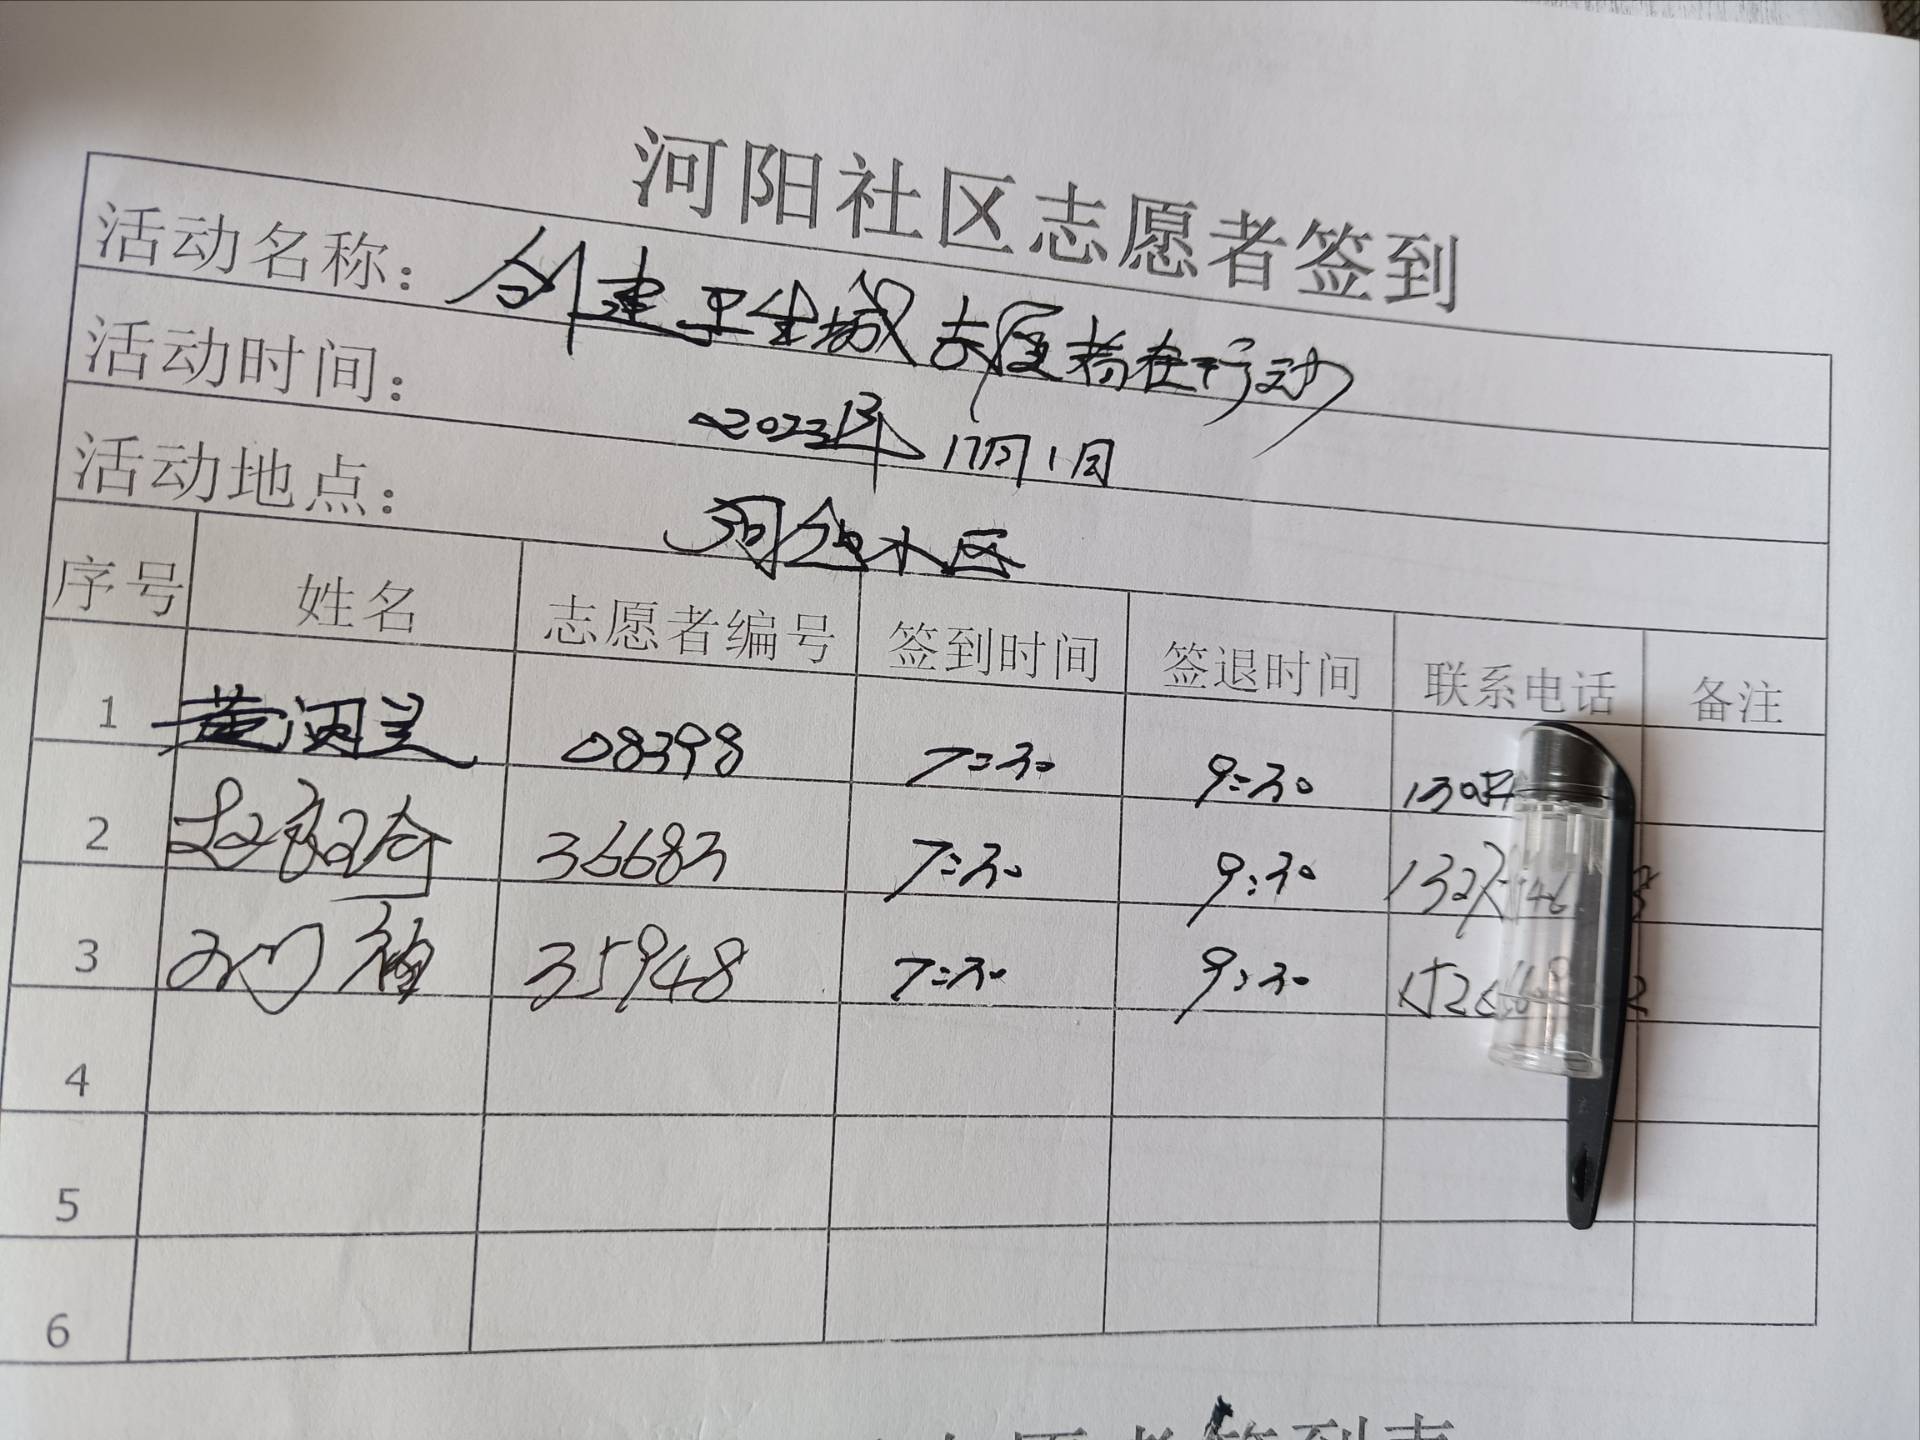 河阳社区志愿者签到
活动名称：创建卫生城志愿者在行动
活动时间：2023年 1月1日
活动地点：河 小区
序号 姓名 志愿者编号 签到时间 签退时间 联系电话 备注
1 黄 兰 08398 7:30 9:30 130
2 36683 7:30 9:30 132
3 35948 7:30 9:30 152
4
5
6
志愿者签到表